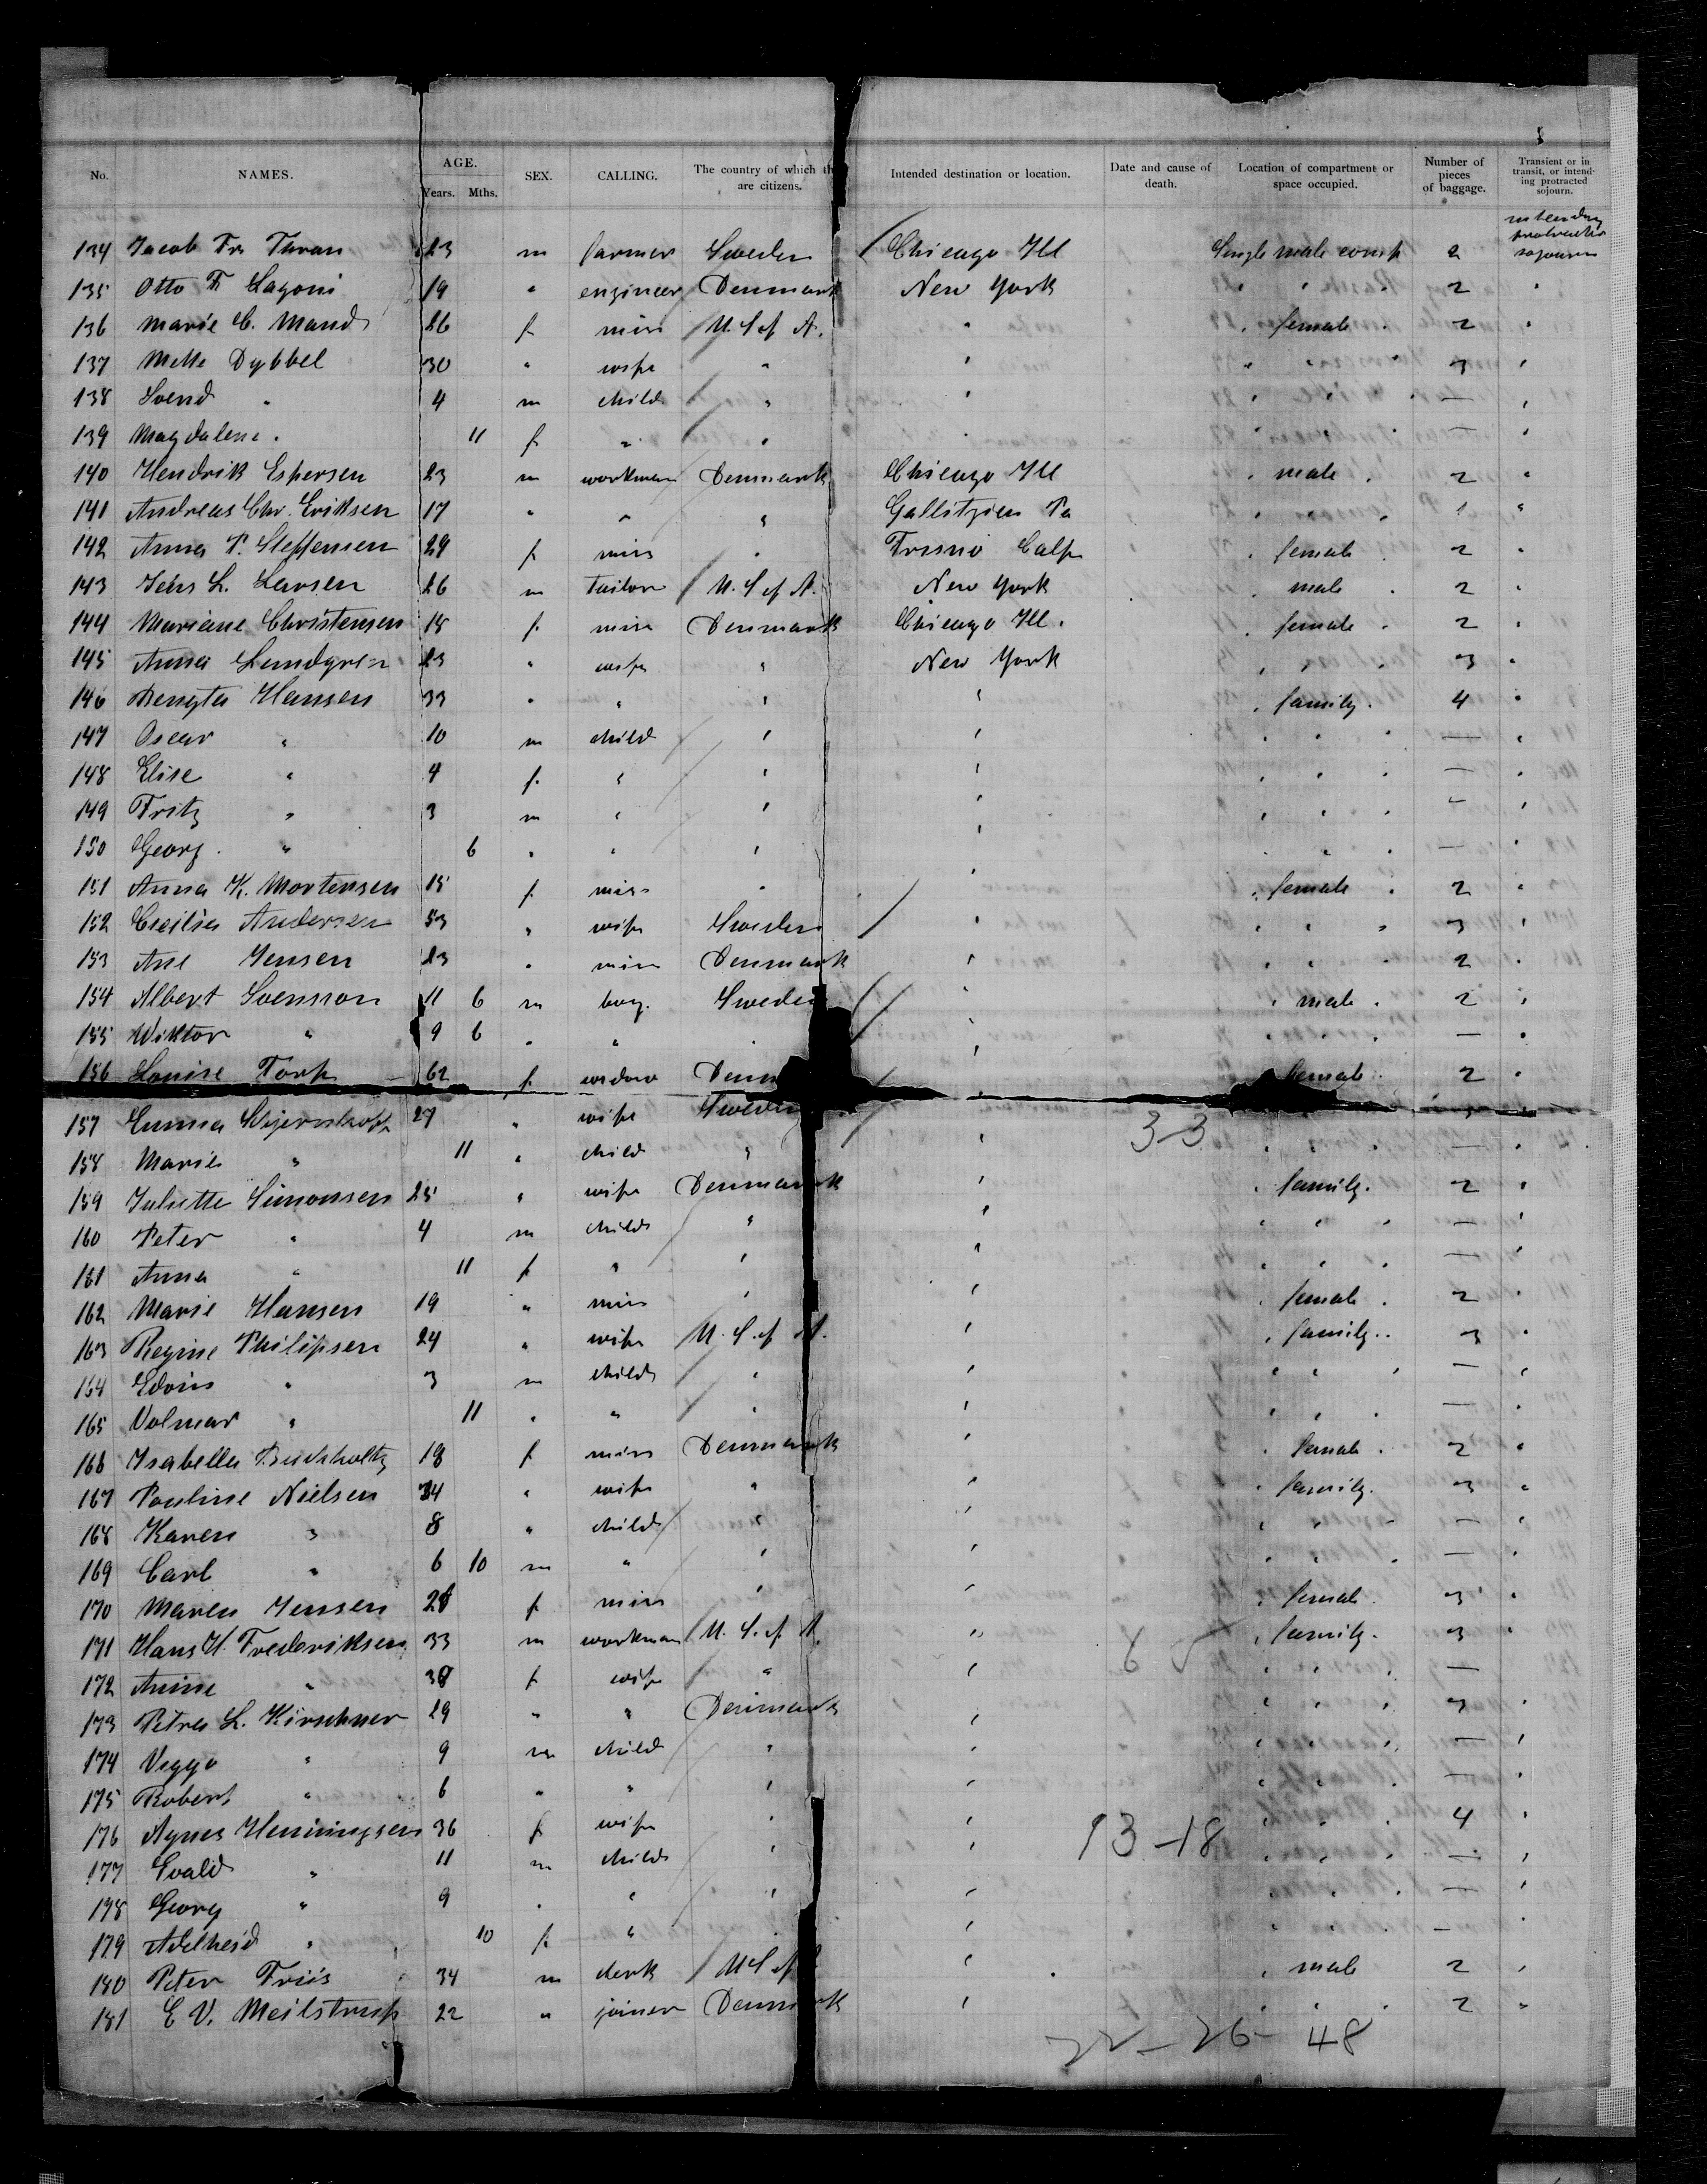 No. NAMES. AGE. Years. Mths. SEX. CALLING. The country of which th are citizens. Intended destination or location. Date and cause of death. Location of compartment or space occupied. Number of pieces of baggage. Transient or in transit, or intend- ing protracted sojourn.
intending protracted sojourn
134 Jacob Fr 23 m farmer Sweden Chicago Ill Single male comp 2
135 Otto F. Lagoni 19 " engineer Denmark New York " " " 2 "
136 Marie C. Mand 26 f. miss U.S of A. " " female " 2 "
137 Mette Dybbel 30 " wife " " " " " 3 "
138 Svend " 4 m child " " " " " — "
139 Magdalene " 11 f. " " " " " " — "
140 Hendrik Espersen 23 m workman Denmark Chicago Ill " male " 2 "
141 Andreas Chr. Eriksen 17 " " " Gallitzien Pa " " " 1 "
142 Anna P. Steffensen 29 f. miss " Fresno Calf " female " 2 "
143 Jens L. Larsen 26 m tailor U.S of A. New York " male " 2 "
144 Mariane Christensen 18 f. miss Denmark Chicago Ill. " female " 2 "
145 Anna Lundgren 23 " wife " New York " " " 3 "
146 Bengta Hansen 33 " " " " " family " 4 "
147 Oscar " 10 m child " " " " " — "
148 Elise " 4 f. " " " " " " — "
149 Fritz " 3 m " " " " " " — "
150 Georg " 6 " " " " " " " — "
151 Anna K. Mortensen 15 f. miss " " " female " 2 "
152 Cecilia Andersen 53 " wife Sweden " " " " 3 "
153 Ane Jensen 23 " miss Denmark " " " " 2 "
154 Albert Svensson 11 6 m boy. Sweden " " male " 2 "
155 Wiktor " 9 6 " " " " " " " — "
156 Louise Torp 62 f. widow Denm " female " 2 "
157 Emma 27 " wife Sweden
3-3
158 Marie " 11 " child " " " " " — "
159 Juliette Simonsen 25 " wife Denmark " " family. 2 "
160 Peter " 4 m child " " " " " — "
161 Anna " 11 f " " " " " " — "
162 Marie Hansen 19 " miss " " " female " 2 "
163 Regine Philipsen 24 " wife U.S. of A. " " family " 3 "
164 Edvin " 3 m child " " " " " — "
165 Volmar " 11 " " " " " " " — "
166 Isabella Buchholtz 18 f miss Denmark " " female " 2 "
167 Pauline Nielsen 34 " wife " " " family. 3 "
168 Karen " 8 " child " " " " " — "
169 Carl " 6 10 m " " " " " " — "
170 Maren Jensen 28 f miss " " " female 3 "
171 Hans H. Frederiksen 33 m workman U.S. of A. " " family. 3 "
6
172 Anine " 38 f wife " " " " " —
173 Petra L. Kirschner 29 " " Denmark " " " " 3 "
174 Viggo " 9 m child " " " " " — "
175 Robert " 6 " " " " " " " — "
176 Agnes Henningsen 36 f wife " " " " " 4 "
13-18
177 Evald " 11 m child " " " " " — "
178 Georg " 9 " " " " " " " — "
179 Adelheid " 10 f. " " " " " " — "
180 Peter Friis 34 m clerk U S of " " male 2 "
181 E V. Meilstrup 22 " joiner Denmark " " " " 2 "
22-26- 48